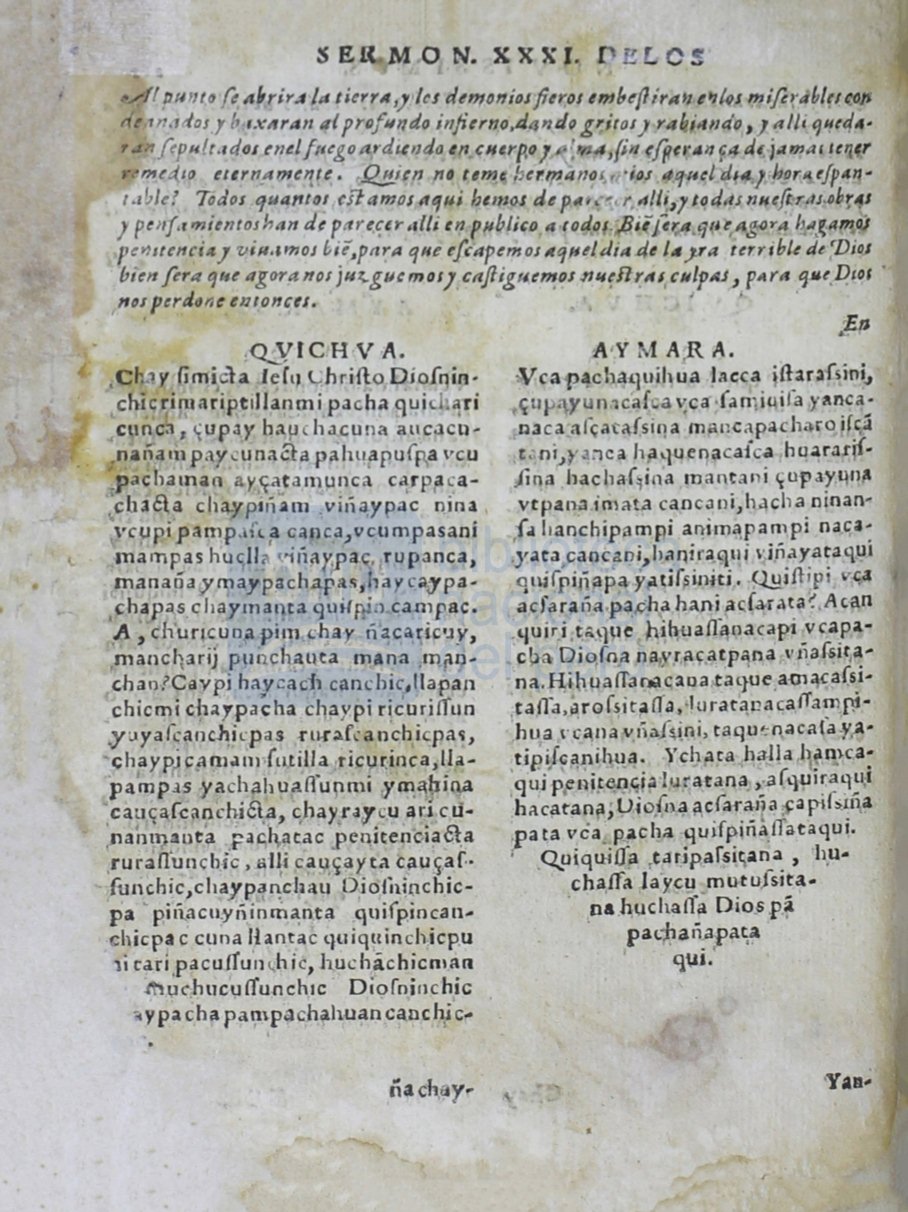 SERMON. XXXI. DELOS
Al punto ſe abrira la tierra, y los demonios fieros embeſtiran enlos miſerables con
denados y baxaran al profundo infierno, dando gritos y rabiando, y alli queda-
ran ſepultados enel fuego ardiendo en cuerpo y alma, ſin eſperança de jamas tener
remedio eternamente. Quien no teme hermanos mios aquel dia y hora eſpan-
table? Todos quantos eſtamos aqui hemos de parecer alli, y todas nueſtras obras
y penſamientos han de pareçer alli en publico a todos. Biẽ ſera que agora hagamos
penitencia y viuamos biẽ, para que eſcapemos aquel dia de la yra terrible de Dios
bien ſera que agora nos juzguemos y caſtiguemos nueſtras culpas, para que Dios
nos perdone entonces.
En
QVICHVA.
Chay ſimicta Ieſu Chriſto Dioſnin-
chic rimariptillanmi pacha quichari
cunca, çupay hauchacuna aucacu-
nañam paycunacta pahuapuſpa vcu
pachaman ayçatamunca carpaca-
chacta chaypiñam viñaypac nina
vcupi pampaſca canca, vcumpasani
mampas huclla viñaypac rupanca,
manaña ymaypachapas, haycaypa-
chapas chaymanta quiſpin campac.
A, churicuna pim chay ñacaricuy,
mancharij punchauta mana man-
chan? Caypi haycach canchic, llapan
chicmi chaypacha chaypi ricuriſſun
yuyaſcanchicpas ruraſcanchicpas,
chaypicamam ſutilla ricurinca, lla-
pampas yachahuaſſunmi ymahina
cauçaſcanchicta, chayraycu ari cu-
nanmanta pachatac penitenciacta
ruraſſunchic, alli cauçayta cauçaſ-
ſunchic, chaypanchau Dioſninchic-
pa piñacuyñinmanta quiſpincan-
chicpac cuna llantac quiquinchicpu
ni taripacuſſunchic, huchãchicman
Muchucuſſunchic Dioſninchic
aypacha pampachahuancanchic-
ña chay-
AYMARA.
Vca pachaquihua lacca iſtaraſsini,
çupayunacaſca vca ſamiuiſa yanca-
naca aſcataſsina mancapacharo iſcã
tani, yanca haquenacaſca huararif-
ſina hachaſsina mantani çupayuna
vtpana imata cancani, hacha ninan-
ſa hanchipampi animapampi naca-
yata cancani, haniraqui viñayataqui
quiſpiñapa yatiſsiniti. Quiſtipi vca
acſaraña pacha hani acſarata? Acan
quiri taque hihuaſſanacapi vcapa-
cha Dioſna nayracatpana vñaſsita-
na. Hihuaſſanacana taque amacaſsi-
taſſa, aroſsitaſſa, luratanacaſſampi-
hua vcana vñaſsini, taquenacaſa ya-
tipiſcanihua. Ychata halla hamca-
qui penitencia luratana, aſquiraqui
hacatana, Dioſna acſaraña çapiſsiña
pata vca pacha quiſpiñaſſataqui.
Quiquiſſa taripaſsitana, hu-
chaſſa laycu mutuſsita-
na huchaſſa Dios pã
pachañapata
qui.
Yan-